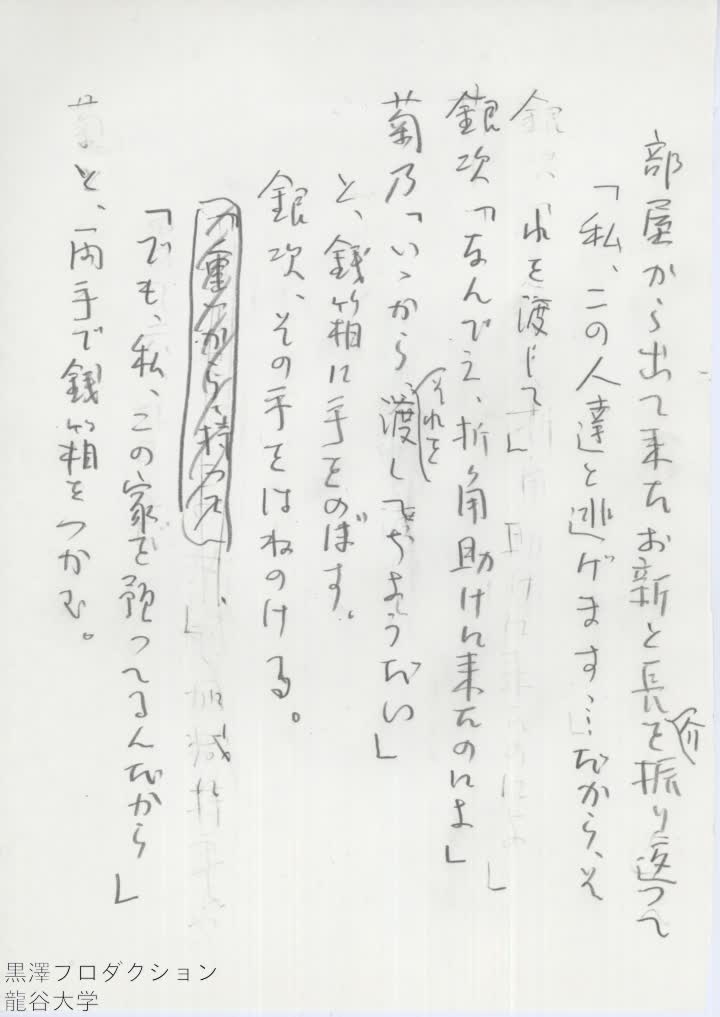 部屋から出て来たお新と長介を振り返って
「私、この人達と逃げます…だから、そ
れを渡して」
銀次「なんでえ、折角助けに来たのによ」
菊乃「いいから、それを渡してちょうだい」
と、銭箱に手をのばす。
銀次、その手をはねのける。
「でも、私、この家を預ってるんだから」
と、両手で銭箱をつかむ。
黒澤プロダクション
龍谷大学